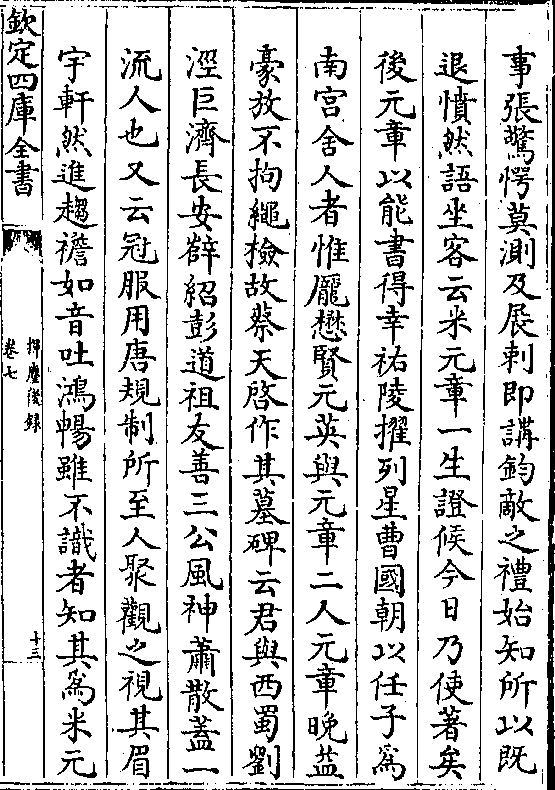 事張驚愕莫測及展刺即講鈞敵之禮始知所以既
退憤然語坐客云米元章一生證候今日乃使著矣
後元章以能書得幸祐陵擢列星曹國朝以任子為
南宮舍人者惟龐懋賢元英與元章二人元章晚益
豪放不拘繩檢故蔡天啓作其墓碑云君與西蜀劉
涇巨濟長安薛紹彭道祖友善三公風神蕭散蓋一
流人也又云冠服用唐規制所至人聚觀之視其眉
宇軒然進趨襜如音吐鴻暢雖不識者知其為米元
欽定四庫全書
揮麈後録
卷七
十三